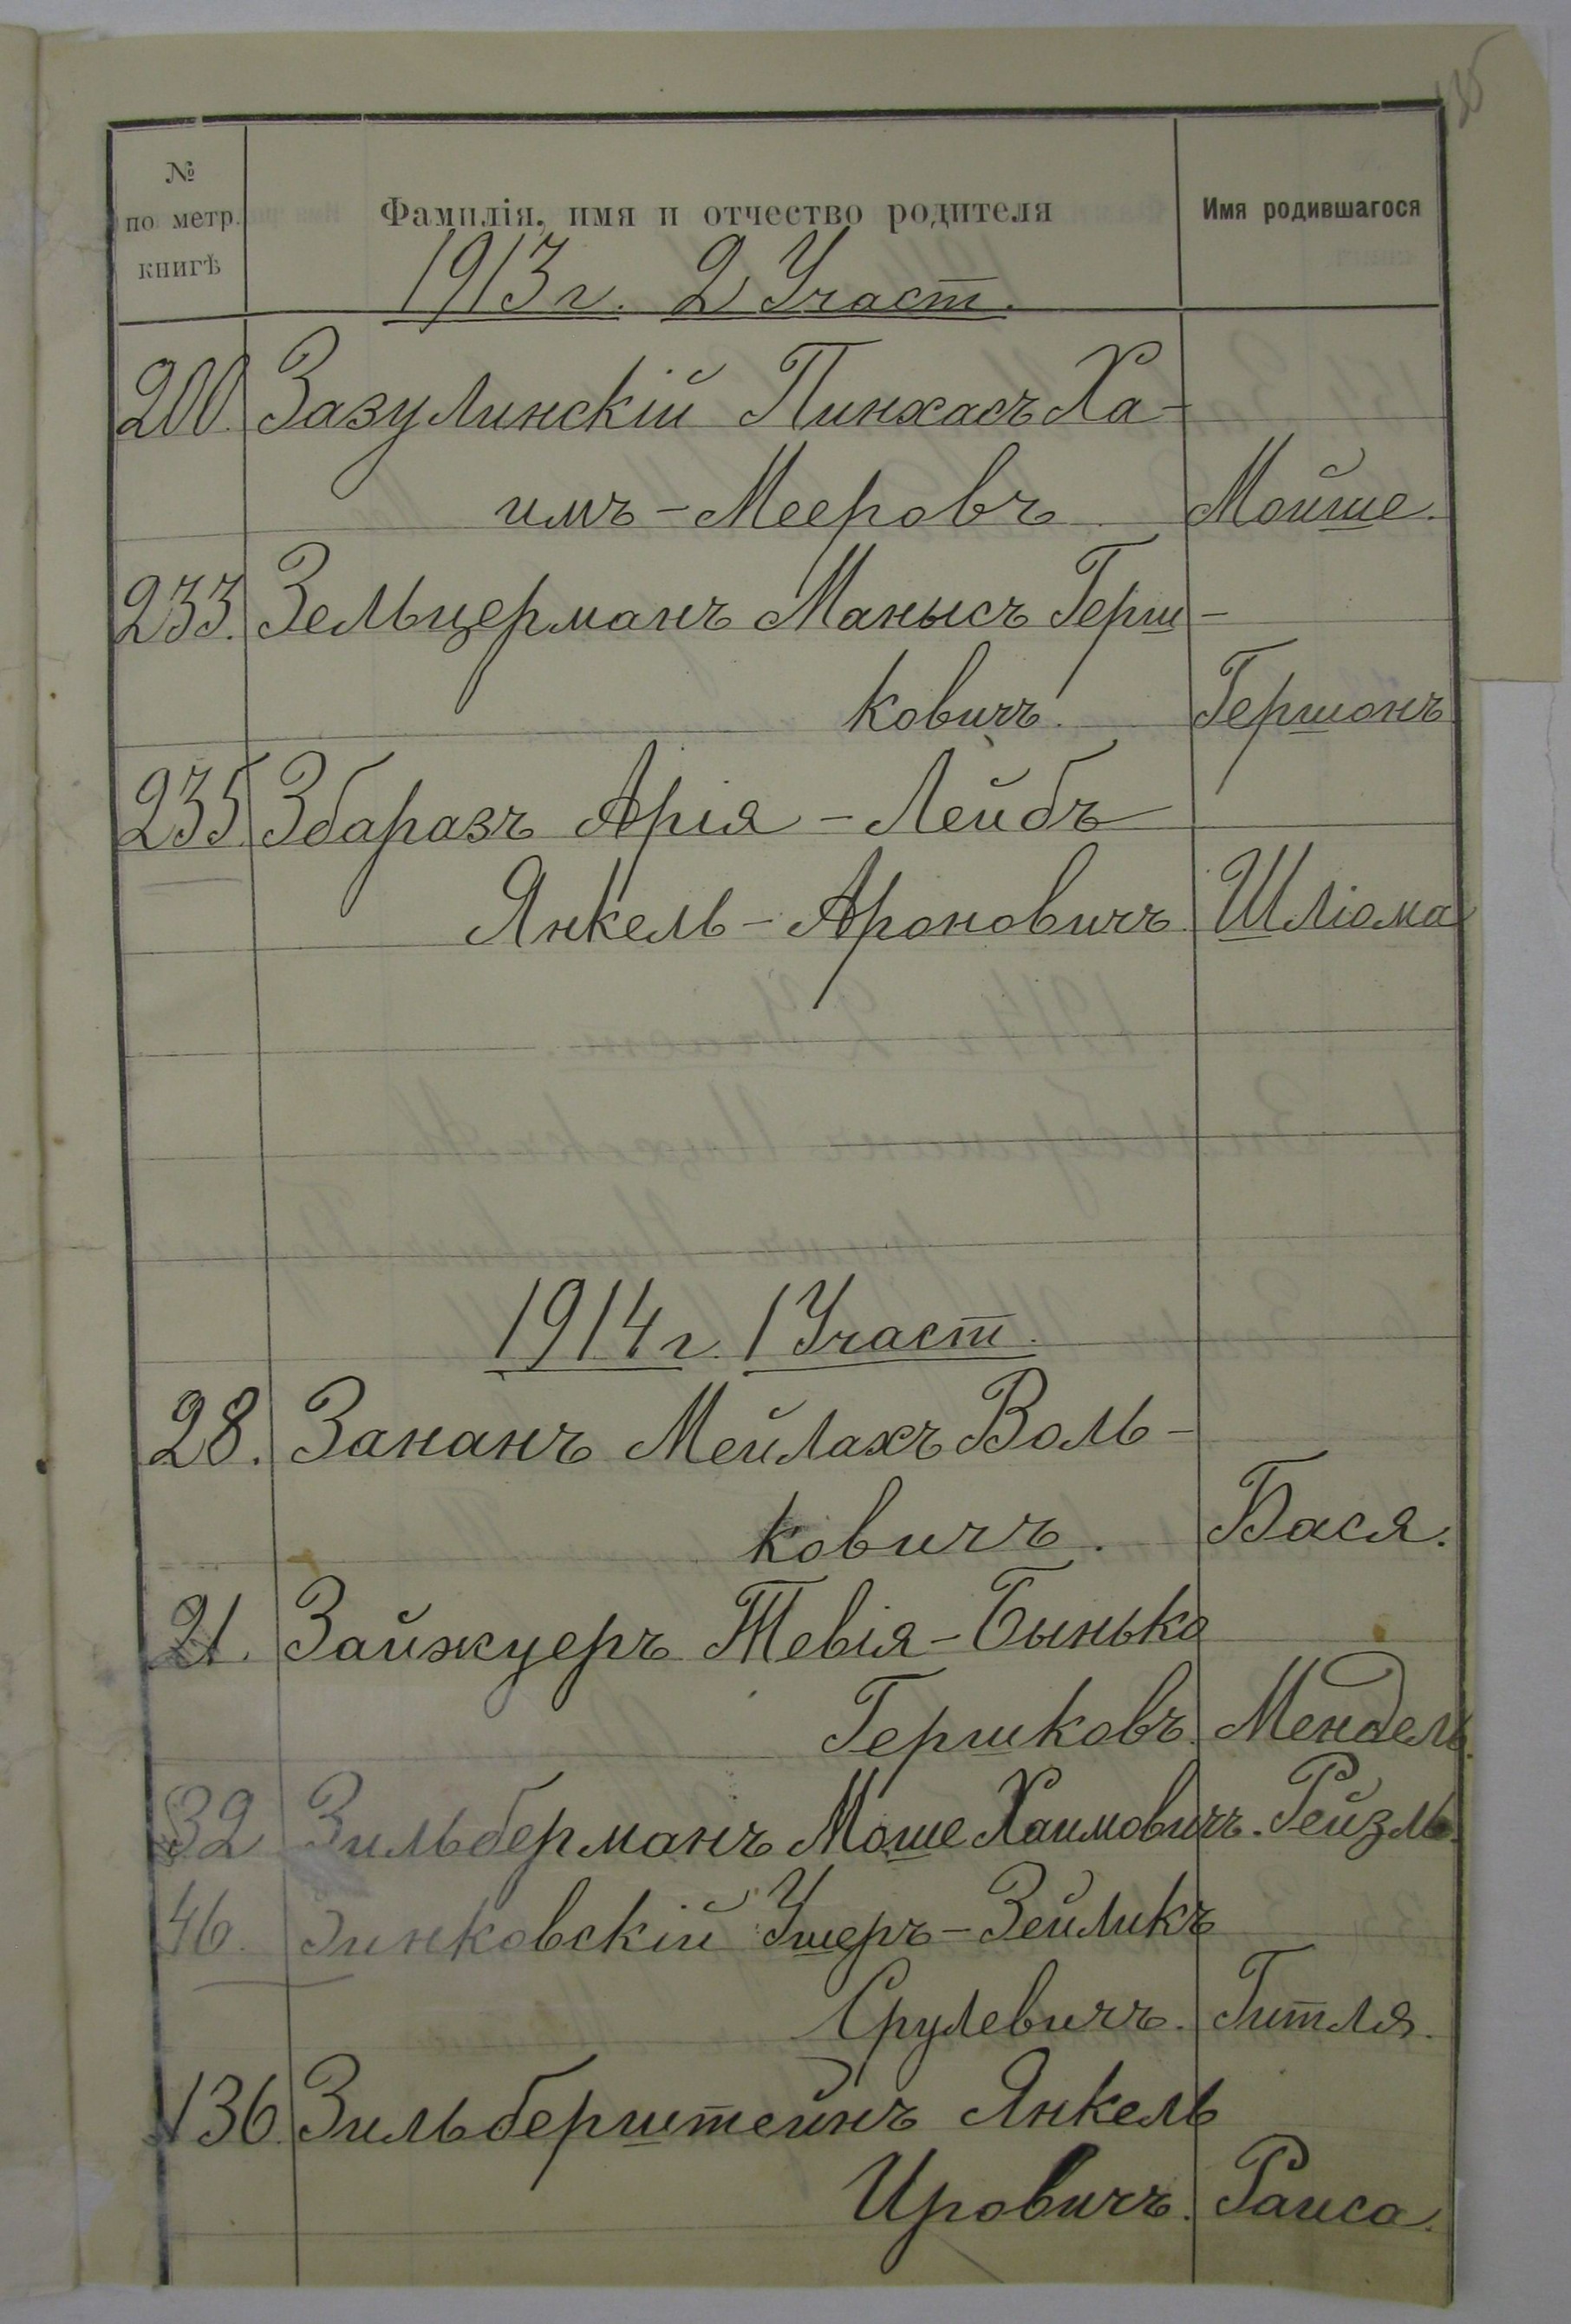 135
№
по метр.
книгѣ
Фамилія, имя и отчество родителя
Имя родившагося
1913 г. 2 Участ.
200. Зазулинскій Пинхасъ Ха-
имъ-Мееровъ Мойше.
233. Зельцерманъ Манысъ Герш-
ковичъ. Гершонъ
235. Збаразъ Арія-Лейбъ
Янкель-Ароновичъ. Шліома
1914 г. 1 Участ.
28. Зананъ Мейлахъ Воль-
ковичъ. Бася.
21. Тевія-Бынько
Гершковъ. Мендель.
32 Зильберманъ Моше Хаимовичъ. Рейзль.
46. Зинковскій Ушеръ-Зейликъ
Срулевичъ. Гитля.
136. Зильберштейнъ Янкель
Ировичъ. Раиса.